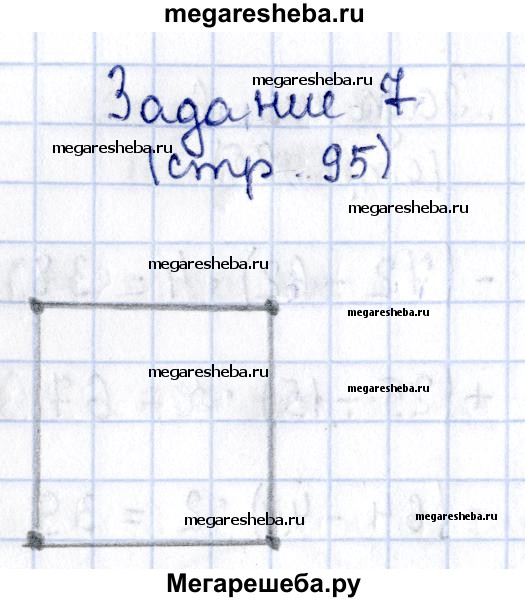 megaresheba.ru
megaresheba.ru
Задание 7
megaresheba.ru
(стр. 95)
megaresheba.ru
megaresheba.ru
megaresheba.ru
megaresheba.ru
megaresheba.ru
megaresheba.ru
megaresheba.ru
Мегарешеба.ру